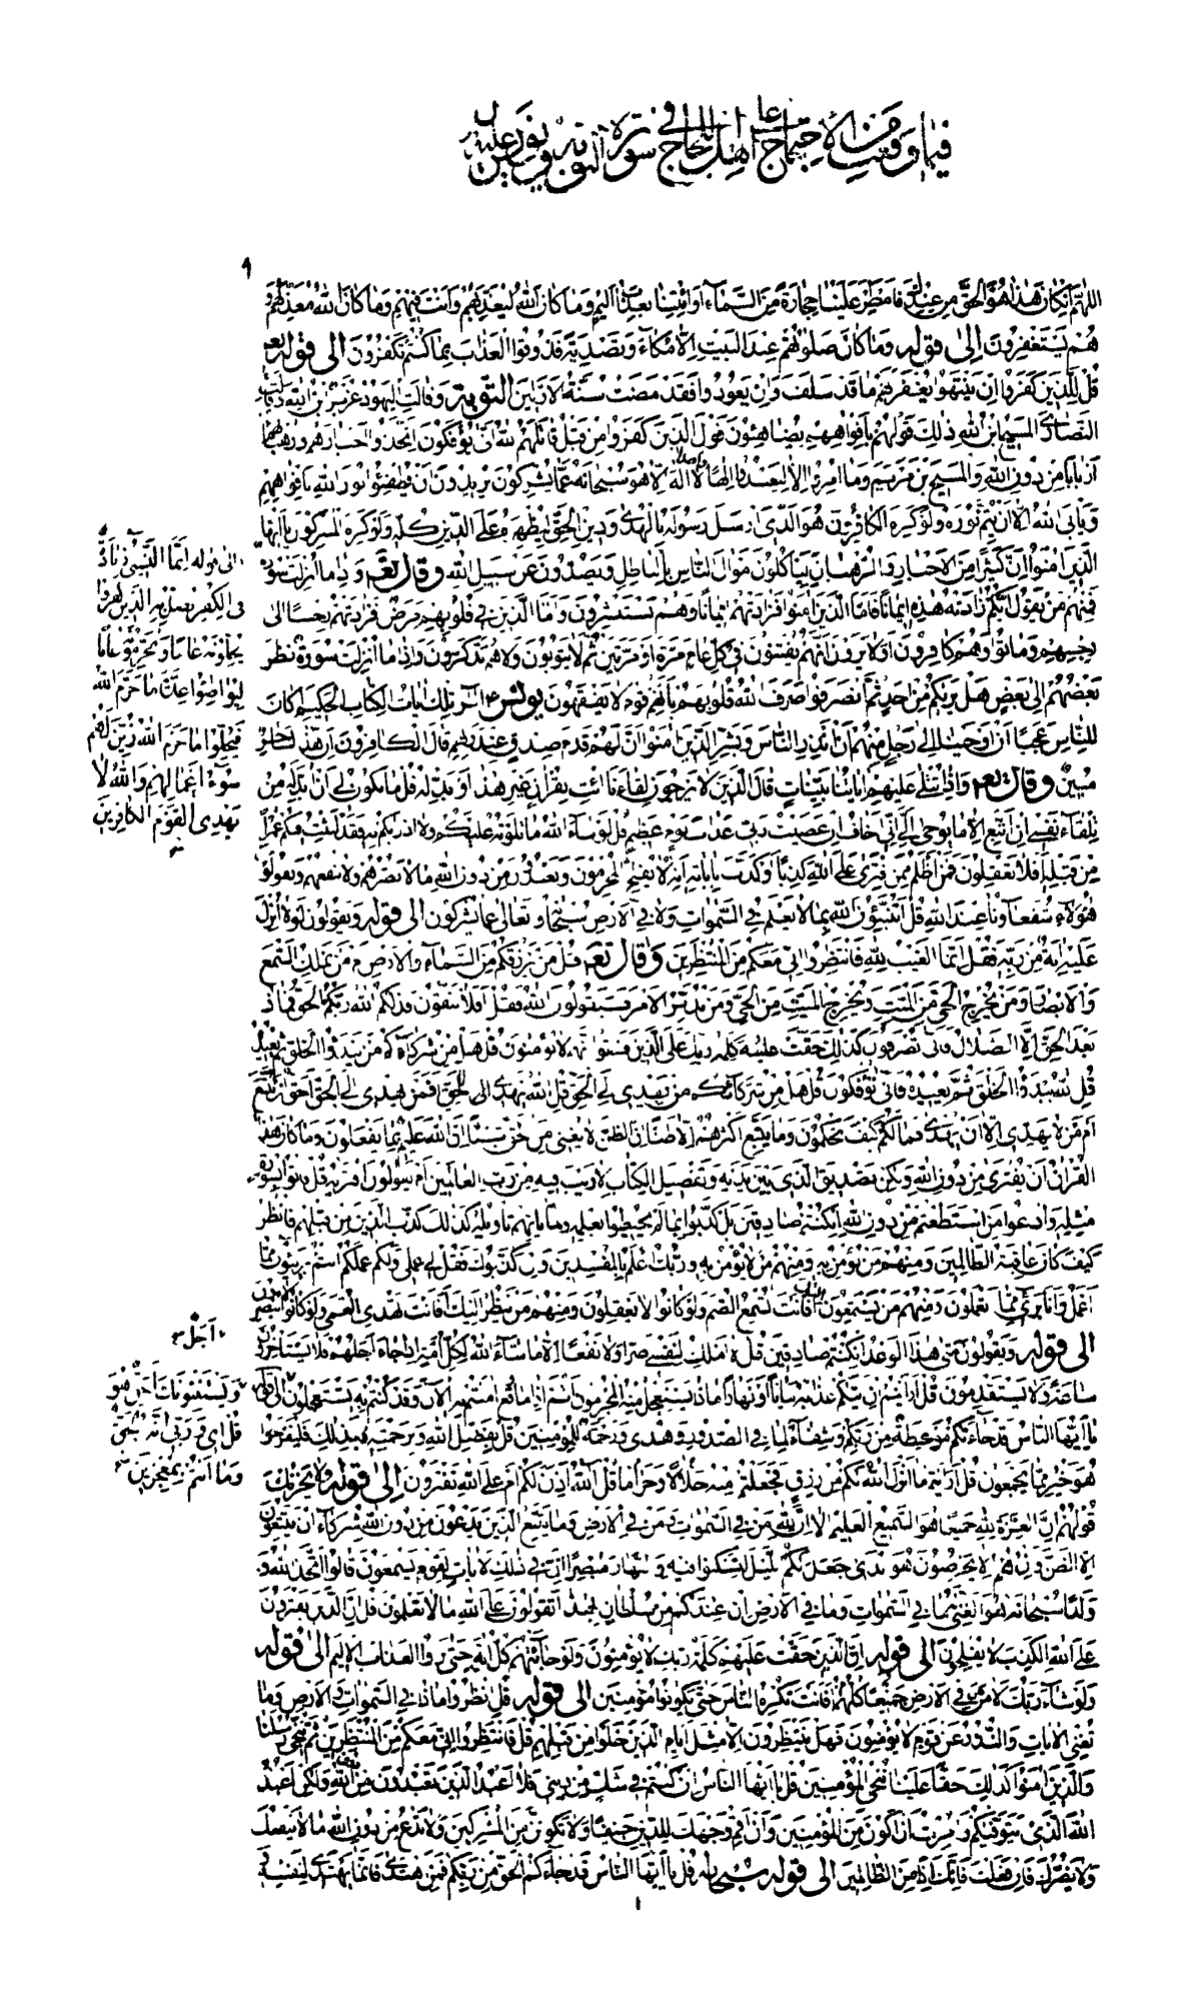 فيما وقع من الاحتجاج على اهل اللجاج في سورة التوبة ويونس
٩
اللهم ان كان هذا هو الحق من عندك فامطر علينا حجارة من السماء او ائتنا بعذاب اليم وما كان الله ليعذبهم وانت فيهم وما كان الله معذبهم و
هم يستغفرون الى قوله وما كان صلوتهم عند البيت الا مكاء وتصدية فذوقوا العذاب بما كنتم تكفرون الى قوله تعالى
قل للذين كفروا ان ينتهوا يغفر لهم ما قد سلف وان يعودوا فقد مضت سنة الاولين التوبة وقالت اليهود عزير ابن الله وقالت
النصارى المسيح ابن الله ذلك قولهم بافواههم يضاهئون قول الذين كفروا من قبل قاتلهم الله انى يؤفكون اتخذوا احبارهم ورهبانهم
اربابا من دون الله والمسيح بن مريم وما امروا الا ليعبدوا الها واحدا لا اله الا هو سبحانه عما يشركون يريدون ان يطفئوا نور الله بافواههم
ويابى الله الا ان يتم نوره ولو كره الكافرون هو الذي ارسل رسوله بالهدى ودين الحق ليظهره على الدين كله ولو كره المشركون يا ايها
الذين امنوا ان كثيرا من الاحبار والرهبان لياكلون اموال الناس بالباطل ويصدون عن سبيل الله وقال تعالى واذا ما انزلت سورة
فمنهم من يقول ايكم زادته هذه ايمانا فاما الذين امنوا فزادتهم ايمانا وهم يستبشرون واما الذين في قلوبهم مرض فزادتهم رجسا الى
رجسهم وماتوا وهم كافرون اولا يرون انهم يفتنون في كل عام مرة او مرتين ثم لا يتوبون ولا هم يذكرون واذا ما انزلت سورة نظر
بعضهم الى بعض هل يريكم من احد ثم انصرفوا صرف الله قلوبهم بانهم قوم لا يفقهون يونس الر تلك ايات الكتاب الحكيم اكان
للناس عجبا ان اوحينا الى رجل منهم ان انذر الناس وبشر الذين امنوا ان لهم قدم صدق عند ربهم قال الكافرون ان هذا لساحر
مبين وقال تعالى واذا تتلى عليهم اياتنا بينات قال الذين لا يرجون لقاءنا ائت بقران غير هذا او بدله قل ما يكون لي ان ابدله من
تلقاء نفسي ان اتبع الا ما يوحى الي اني اخاف ان عصيت ربي عذاب يوم عظيم قل لو شاء الله ما تلوته عليكم ولا ادريكم به فقد لبثت فيكم عمرا
من قبله افلا تعقلون فمن اظلم ممن افترى على الله كذبا او كذب باياته انه لا يفلح المجرمون ويعبدون من دون الله ما لا يضرهم ولا ينفعهم ويقولون
هؤلاء شفعاؤنا عند الله قل اتنبؤن الله بما لا يعلم في السموات ولا في الارض سبحانه وتعالى عما يشركون الى قوله ويقولون لولا انزل
عليه اية من ربه فقل انما الغيب لله فانتظروا اني معكم من المنتظرين وقال تعالى قل من يرزقكم من السماء والارض ام من يملك السمع
والابصار ومن يخرج الحي من الميت ويخرج الميت من الحي ومن يدبر الامر فسيقولون الله فقل افلا تتقون فذلكم الله ربكم الحق فماذا
بعد الحق الا الضلال فانى تصرفون كذلك حقت كلمة ربك على الذين فسقوا انهم لا يؤمنون قل هل من شركائكم من يبدؤ الخلق ثم يعيده
قل الله يبدؤا الخلق ثم يعيده فانى تؤفكون قل هل من شركائكم من يهدي الى الحق قل الله يهدي للحق افمن يهدي الى الحق احق ان يتبع
ام من لا يهدي الا ان يهدى فما لكم كيف تحكمون وما يتبع اكثرهم الا ظنا ان الظن لا يغني من الحق شيئا ان الله عليم بما يفعلون وما كان هذا
القران ان يفترى من دون الله ولكن تصديق الذي بين يديه وتفصيل الكتاب لا ريب فيه من رب العالمين ام يقولون افتريه قل فاتوا بسورة
مثله وادعوا من استطعتم من دون الله ان كنتم صادقين بل كذبوا بما لم يحيطوا بعلمه ولما ياتهم تاويله كذلك كذب الذين من قبلهم فانظر
كيف كان عاقبة الظالمين ومنهم من يؤمن به ومنهم من لا يؤمن به وربك اعلم بالمفسدين وان كذبوك فقل لي عملي ولكم عملكم انتم بريئون مما
اعمل وانا برئ مما تعملون ومنهم من يستمعون اليك افانت تسمع الصم ولو كانوا لا يعقلون ومنهم من ينظر اليك افانت تهدي العمي ولو كانوا لا يبصرون
الى قوله ويقولون متى هذا الوعد ان كنتم صادقين قل لا املك لنفسي ضرا ولا نفعا الا ما شاء الله لكل امة اجل اذا جاء اجلهم فلا يستاخرون
ساعة ولا يستقدمون قل ارايتم ان اتيكم عذابه بياتا او نهارا ماذا يستعجل منه المجرمون اثم اذا ما وقع امنتم به الان وقد كنتم به تستعجلون الى قوله
يا ايها الناس قد جاءتكم موعظة من ربكم وشفاء لما في الصدور وهدى ورحمة للمؤمنين قل بفضل الله وبرحمته فبذلك فليفرحوا
هو خير مما يجمعون قل ارايتم ما انزل الله لكم من رزق فجعلتم منه حلالا وحراما قل آلله اذن لكم ام على الله تفترون الى قوله ولا يحزنك
قولهم ان العزة لله جميعا هو السميع العليم الا ان لله من في السموات ومن في الارض وما يتبع الذين يدعون من دون الله شركاء ان يتبعون
الا الظن وان هم الا يخرصون هو الذي جعل لكم الليل لتسكنوا فيه والنهار مبصرا ان في ذلك لايات لقوم يسمعون قالوا اتخذ الله و
ولدا سبحانه هو الغني له ما في السموات وما في الارض ان عندكم من سلطان بهذا اتقولون على الله ما لا تعلمون قل ان الذين يفترون
على الله الكذب لا يفلحون الى قوله ان الذين حقت عليهم كلمة ربك لا يؤمنون ولو جاءتهم كل اية حتى يروا العذاب الاليم الى قوله
ولو شاء ربك لامن من في الارض كلهم جميعا افانت تكره الناس حتى يكونوا مؤمنين الى قوله قل انظروا ماذا في السموات والارض وما
تغني الايات والنذر عن قوم لا يؤمنون فهل ينتظرون الا مثل ايام الذين خلوا من قبلهم قل فانتظروا اني معكم من المنتظرين ثم ننجي رسلنا
والذين امنوا كذلك حقا علينا ننجي المؤمنين قل يا ايها الناس ان كنتم في شك من ديني فلا اعبد الذين تعبدون من دون الله ولكن اعبد
الله الذي يتوفيكم وامرت ان اكون من المؤمنين وان اقم وجهك للدين حنيفا ولا تكونن من المشركين ولا تدع من دون الله ما لا ينفعك
ولا يضرك فان فعلت فانك اذا من الظالمين الى قوله سبحانه قل يا ايها الناس قد جاءكم الحق من ربكم فمن اهتدى فانما يهتدي لنفسه
الى قوله انما النسيئ زيادة
في الكفر يضل به الذين كفروا
يحلونه عاما ويحرمونه عاما
ليواطئوا عدة ما حرم الله
فيحلوا ما حرم الله زين لهم
سوء اعمالهم والله لا
يهدي القوم الكافرين
اجل
ويستنبئونك احق هو
قل اي وربي انه لحق
وما انتم بمعجزين
١